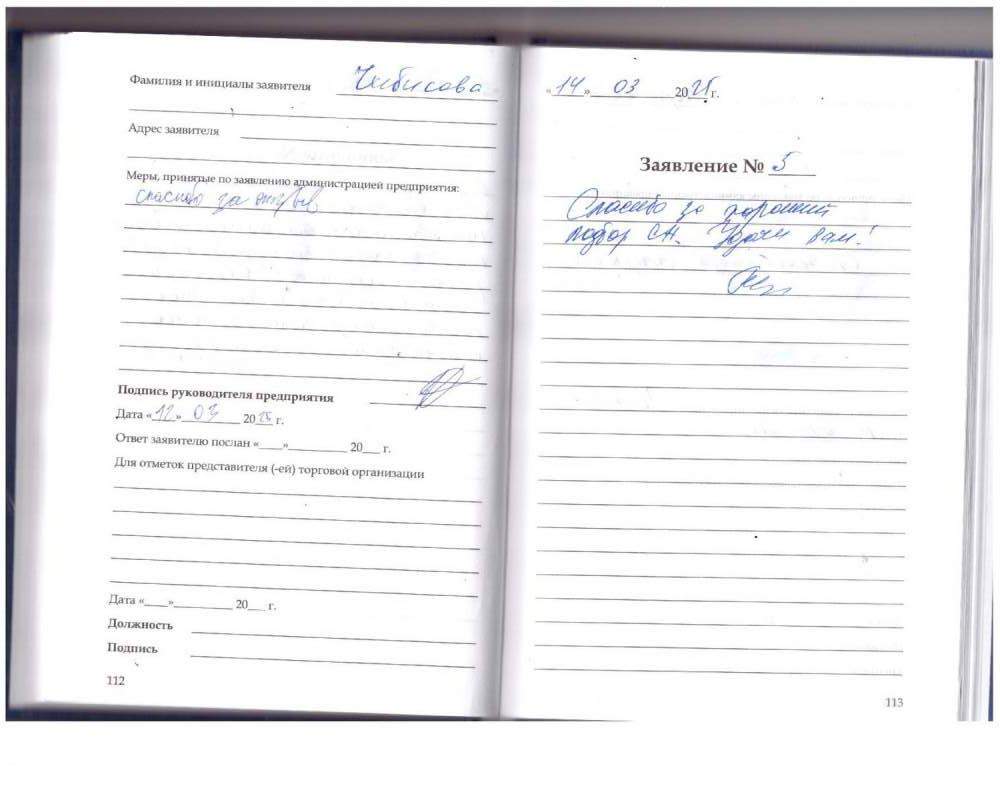 Фамилия и инициалы заявителя Чибисова
Адрес заявителя
Меры, принятые по заявлению администрацией предприятия:
спасибо за отзыв
Подпись руководителя предприятия
Дата «12» 03 2025 г.
Ответ заявителю послан «___»_________ 20___ г.
Для отметок представителя (-ей) торговой организации
Дата «___»_________ 20___ г.
Должность
Подпись
112
«14» 03 2025 г.
Заявление № 5
Спасибо за хороший
подбор СА. Удачи вам!
113